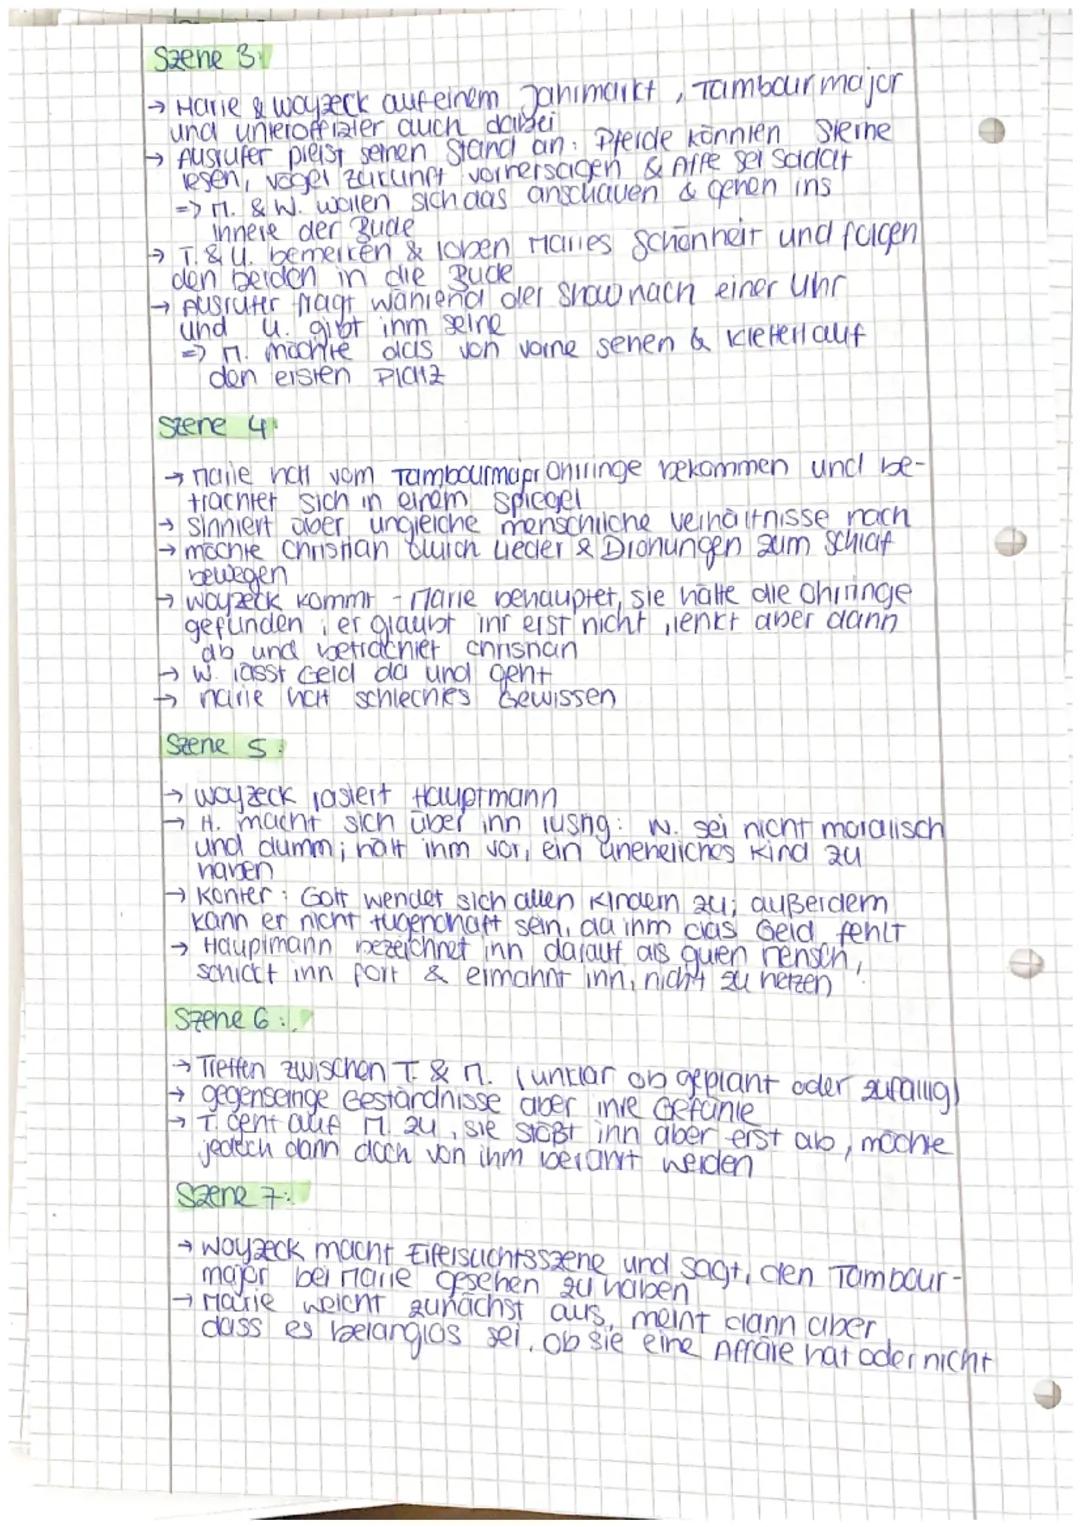 Szene 3:
→ Marie & Woyzeck auf einem Jahrmarkt, Tambourmajor
und Unteroffizier auch dabei
→ Ausrufer preist seinen Stand an: Pferde könnten Sterne
lesen, Vögel Zukunft vorhersagen & Affe sei Soldat
=> M. & W. wollen sich das anschauen & gehen ins
Innere der Bude
→ T. & U. bemerken & loben Maries Schönheit und folgen
den beiden in die Bude
→ Ausrufer fragt während der Show nach einer Uhr
und U. gibt ihm seine
=> M. möchte das von vorne sehen & klettert auf
den ersten Platz
Szene 4:
→ Marie hat vom Tambourmajor Ohrringe bekommen und be-
trachtet sich in einem Spiegel
→ sinniert über ungleiche menschliche Verhältnisse nach
→ möchte Christian durch Lieder & Drohungen zum Schlaf
bewegen
→ Woyzeck kommt - Marie behauptet, sie hätte die Ohrringe
gefunden, er glaubt ihr erst nicht, lenkt aber dann
ab und betrachtet Christian
→ W. lässt Geld da und geht
→ Marie hat schlechtes Gewissen
Szene 5:
→ Woyzeck rasiert Hauptmann
→ H. macht sich über ihn lustig: W. sei nicht moralisch
und dumm; hält ihm vor, ein uneheliches Kind zu
haben
→ Konter: Gott wendet sich allen Kindern zu; außerdem
kann er nicht tugendhaft sein, da ihm das Geld fehlt
→ Hauptmann bezeichnet ihn darauf als guten Mensch,
schickt ihn fort & ermahnt ihn, nicht zu hetzen
Szene 6:
→ Treffen zwischen T. & M. (unklar ob geplant oder zufällig)
→ gegenseitige Geständnisse über ihre Gefühle
→ T. geht auf M. zu, sie stößt ihn aber erst ab, möchte
jedoch dann doch von ihm berührt werden
Szene 7:
→ Woyzeck macht Eifersuchtsszene und sagt, den Tambour-
major bei Marie gesehen zu haben
→ Marie weicht zunächst aus, meint dann aber
dass es belanglos sei, ob sie eine Affäre hat oder nicht